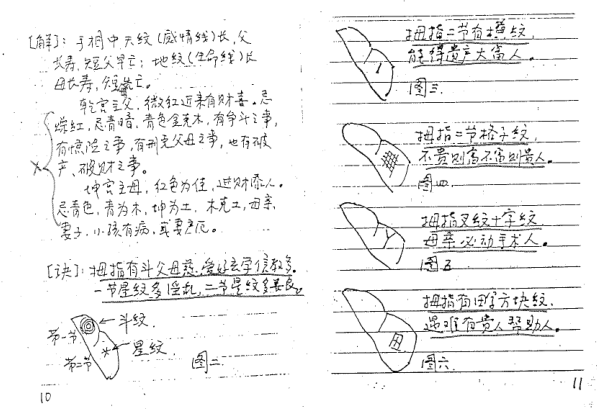 [解]：手相中天纹(感情线)长，父
长寿，短父早亡；地纹(生命线)长
母长寿，短早亡。
乾宫主父，微红近来有财喜。忌
燥红，忌青暗，青色金克木，有争斗之事，
有惊险之事，有刑克父母之事，也有破
产、破财之事。
坤宫主母，红色为佳，进财添人。
忌青色，青为木，坤为土，木克土，母亲、
妻子、小孩有病，或妻产厄。
[诀]：拇指有斗父母慈，爱好玄学信教多。
一节星纹多淫乱，二节星纹多善良。
第一节
斗纹
第二节
星纹
图二
10
拇指二节有横纹，
能得遗产大富人。
图三
拇指二节格子纹，
不贵则富不富则贵人。
图四
拇指叉纹十字纹，
母亲必动手术人。
图五
拇指有田字方块纹，
遇难有贵人帮助人。
图六
11